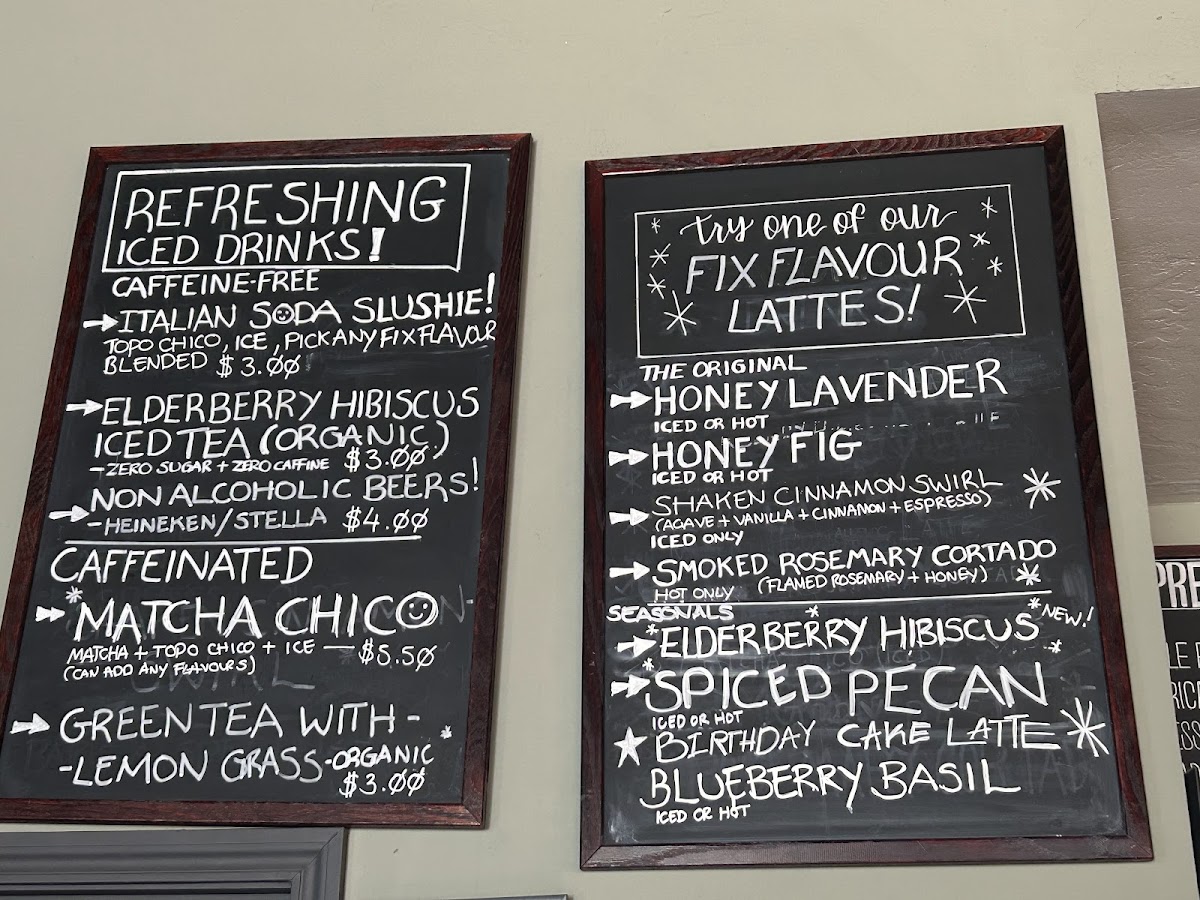 REFRESHING
ICED DRINKS!
CAFFEINE-FREE
ITALIAN SODA SLUSHIE!
TOPO CHICO, ICE, PICK ANY FIX FLAVOUR
BLENDED $3.00
ELDERBERRY HIBISCUS
ICED TEA (ORGANIC)
-ZERO SUGAR + ZERO CAFFINE $3.00
NON ALCOHOLIC BEERS!
-HEINEKEN/STELLA $4.00
CAFFEINATED
*MATCHA CHICO
MATCHA + TOPO CHICO + ICE — $5.50
(CAN ADD ANY FLAVOURS)
GREEN TEA WITH -
-LEMON GRASS-ORGANIC
$3.00
try one of our
FIX FLAVOUR
LATTES!
THE ORIGINAL
HONEY LAVENDER
ICED OR HOT
HONEY FIG
ICED OR HOT
SHAKEN CINNAMON SWIRL
(AGAVE + VANILLA + CINNAMON + ESPRESSO)
ICED ONLY
SMOKED ROSEMARY CORTADO
HOT ONLY (FLAMED ROSEMARY + HONEY)
SEASONALS
*ELDERBERRY HIBISCUS *NEW!
*SPICED PECAN
ICED OR HOT
BIRTHDAY CAKE LATTE
BLUEBERRY BASIL
ICED OR HOT
PRE